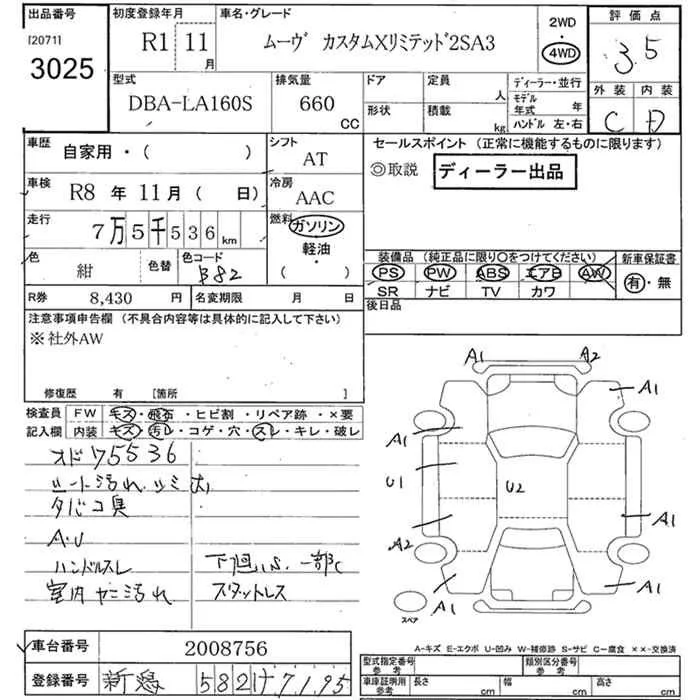 出品番号
I20711
3025
初度登録年月
R1 11月
車名・グレード
ムーヴ カスタムXリミテッド2SA3
2WD
4WD
評価点
3.5
外装 内装
C D
型式
DBA-LA160S
排気量
660 CC
ドア
形状
定員 人
積載 kg
ディーラー・並行
モデル年式 年
ハンドル 左・右
車歴
自家用・( )
シフト
AT
セールスポイント (正常に機能するものに限ります)
◎取説 ディーラー出品
車検
R8 年 11月 ( 日)
冷房
AAC
走行
7万5千536 km
燃料
ガソリン
軽油・
( )
色
紺
色替
色コード
B82
装備品 (純正品に限り○をつけてください)
PS PW ABS エアB AW
SR ナビ TV カワ
新車保証書
有・無
R券 8,430 円
名変期限 月 日
後日品
注意事項申告欄 (不具合内容等は具体的に記入して下さい)
※社外AW
修復歴 有 [箇所 ]
検査員記入欄
FW キズ・飛石・ヒビ割・リペア跡・×要
内装 キズ・汚レ・コゲ・穴・スレ・キレ・破レ
オド75536
シート汚れ シミ 大
タバコ臭
A.U
ハンドルスレ
室内ヤニ汚れ
下廻りS. 一部C
スタットレス
A1 A2
A1
A1
U1
U2
A2
A1
A1
A1
スペア
車台番号 2008756
登録番号 新潟 582 け 7195
A-キズ E-エクボ U-凹み W-補修跡 S-サビ C-腐食 ××-交換済
型式指定番号 参考
類別区分番号 参考
車庫証明用 参考
長さ cm
幅 cm
高さ cm